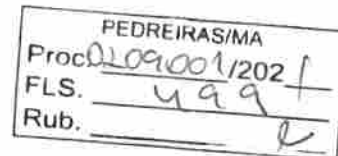 PEDREIRAS/MA
Proc. 0209001/2021
FLS. 499
Rub.